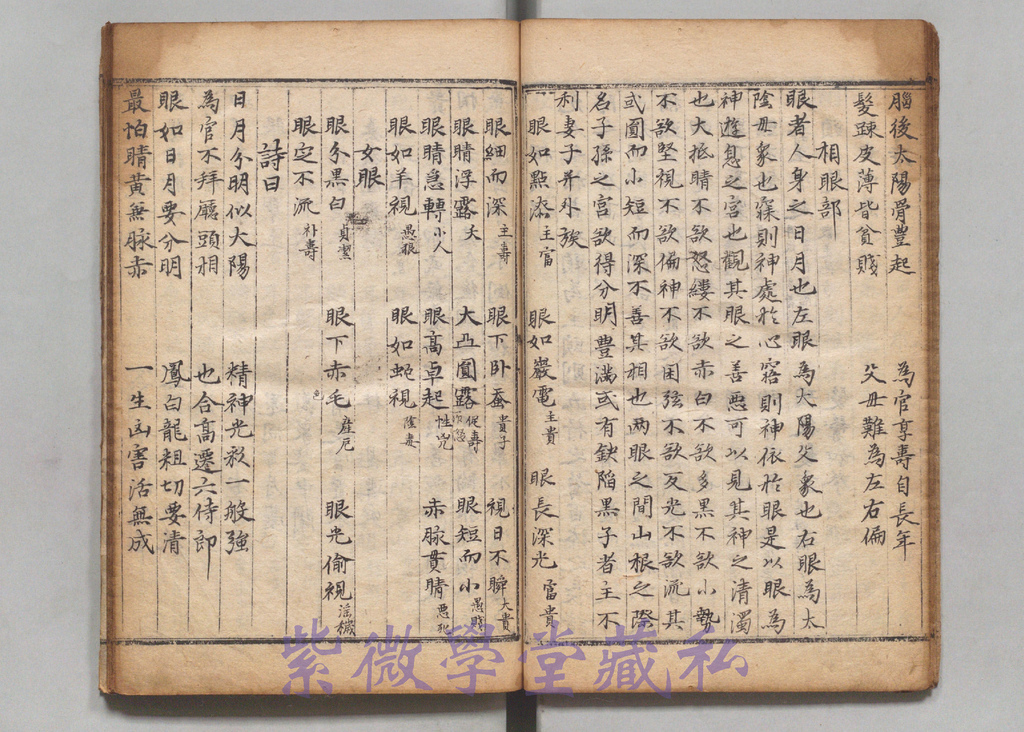 腦後太陽骨豊起 為官享壽自長年
髮踈皮薄皆貧賤 父母難為左右偏
相眼部
眼者人身之日月也左眼為太陽父象也右眼為太
陰母象也寐則神處於心寤則神依於眼是以眼為
神遊息之宮也觀其眼之善惡可以見其神之清濁
也大抵睛不欲怒縷不欲赤白不欲多黑不欲小勢
不欲竪視不欲偏神不欲困弦不欲反光不欲流其
或圓而小短而深不善其相也两眼之間山根之際
名子孫之宮欲得分明豊滿或有缺陷黑子者主不
利妻子并外族
眼如點漆主富 眼如巖電主貴 眼長深光富貴
眼細而深主壽 眼下卧蚕貴子 視日不瞬大貴
眼睛浮露夭 大凸圓露促壽 眼短而小愚賤
眼睛急轉小人 眼高卓起性兇 赤脉貫睛惡死
眼如羊視愚狠 眼如蛇視
女眼
眼分黑白貞潔 眼下赤毛產厄 眼光偷視淫穢
眼定不流朴壽
詩曰
日月分明似大陽 精神光彩一般強
為官不拜廳頭相 也合高遷六侍郎
眼如日月要分明 鳳目龍粗切要清
最怕睛黃無脉赤 一生凶害活無成
紫微學堂藏私